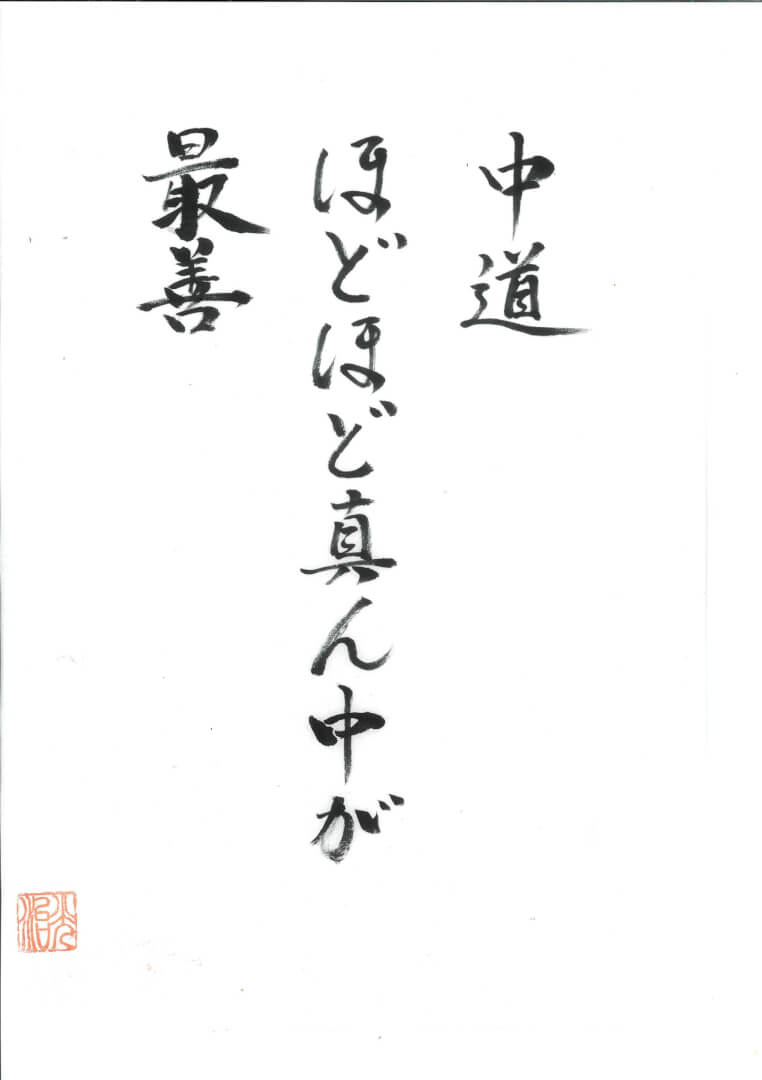 中道
ほどほど真ん中が
最善